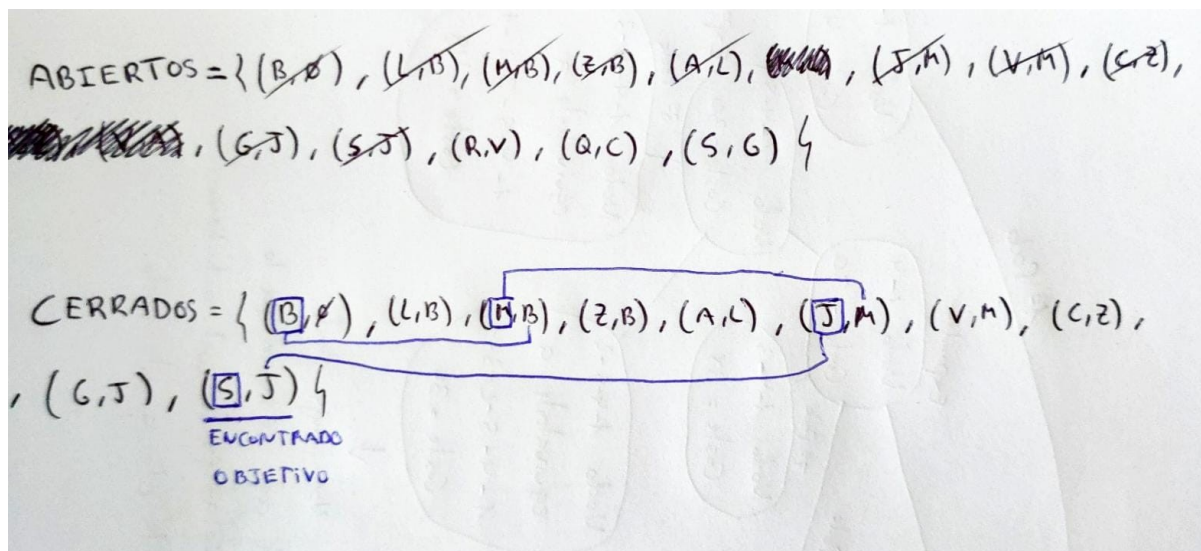 ABIERTOS = { (B,ø), (L,B), (M,B), (Z,B), (A,L), , (J,M), (V,M), (C,Z),
, (G,J), (S,J), (R,V), (Q,C), (S,G) }
CERRADOS = { (B,ø), (L,B), (M,B), (Z,B), (A,L), (J,M), (V,M), (C,Z),
, (G,J), (S,J) }
ENCONTRADO
OBJETIVO